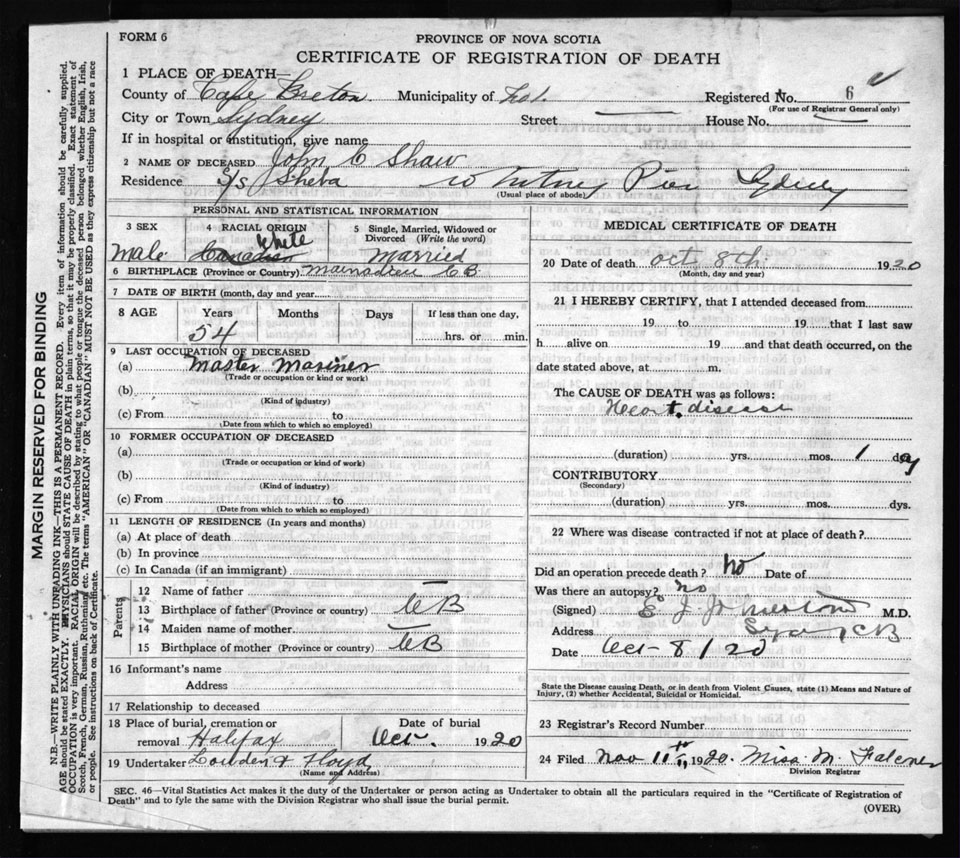 FORM 6
PROVINCE OF NOVA SCOTIA
CERTIFICATE OF REGISTRATION OF DEATH
MARGIN RESERVED FOR BINDING
N.B.—WRITE PLAINLY WITH UNFADING INK—THIS IS A PERMANENT RECORD. Every item of information should be carefully supplied.
AGE should be stated EXACTLY. PHYSICIANS should STATE CAUSE OF DEATH in plain terms, so that it may be properly classified. Exact statement of
OCCUPATION is very important. RACIAL ORIGIN will be described by stating to what people or tongue the deceased person belonged whether English, Irish,
Scotch, French, German, Russian, Ruthenian, etc. The terms "AMERICAN" OR "CANADIAN" MUST NOT BE USED as they express citizenship but not a race
or people. See instructions on back of Certificate.
1 PLACE OF DEATH—
County of Cape Breton Municipality of Registered No. 6
(For use of Registrar General only)
City or Town Sydney Street — House No. —
If in hospital or institution, give name
2 NAME OF DECEASED John C Shaw
Residence S/S Sheba Whitney Pier Sydney
(Usual place of abode)
PERSONAL AND STATISTICAL INFORMATION
3 SEX Male
4 RACIAL ORIGIN Canadian White
5 Single, Married, Widowed or Divorced (Write the word) Married
6 BIRTHPLACE (Province or Country) Mainadieu CB
7 DATE OF BIRTH (month, day and year)
8 AGE Years Months Days If less than one day,
54 hrs. or min.
9 LAST OCCUPATION OF DECEASED
(a) Master Mariner
(Trade or occupation or kind or work)
(b)
(Kind of industry)
(c) From to
(Date from which to which so employed)
10 FORMER OCCUPATION OF DECEASED
(a)
(Trade or occupation or kind of work)
(b)
(Kind of industry)
(c) From to
(Date from which to which so employed)
11 LENGTH OF RESIDENCE (In years and months)
(a) At place of death
(b) In province
(c) In Canada (if an immigrant)
Parents
12 Name of father —
13 Birthplace of father (Province or country) CB
14 Maiden name of mother —
15 Birthplace of mother (Province or country) CB
16 Informant's name
Address
17 Relationship to deceased
18 Place of burial, cremation or removal Halifax Date of burial Oct. 1920
19 Undertaker Lowden & Floyd
(Name and Address)
MEDICAL CERTIFICATE OF DEATH
20 Date of death Oct 8th 1920
(Month, day and year)
21 I HEREBY CERTIFY, that I attended deceased from
19 to 19 that I last saw
h alive on 19 and that death occurred, on the
date stated above, at m.
The CAUSE OF DEATH was as follows:
Heart disease
(duration) yrs. mos. 1 day
CONTRIBUTORY
(Secondary)
(duration) yrs. mos. dys.
22 Where was disease contracted if not at place of death?
Did an operation precede death? No Date of
Was there an autopsy? No
(Signed) E J Johnston M.D.
Address Sydney CB
Date Oct 8/20
State the Disease causing Death, or in death from Violent Causes, state (1) Means and Nature of
Injury, (2) whether Accidental, Suicidal or Homicidal.
23 Registrar's Record Number
24 Filed Nov 11 1920. Miss M. Falconer
Division Registrar
SEC. 46—Vital Statistics Act makes it the duty of the Undertaker or person acting as Undertaker to obtain all the particulars required in the "Certificate of Registration of
Death" and to fyle the same with the Division Registrar who shall issue the burial permit.
(OVER)